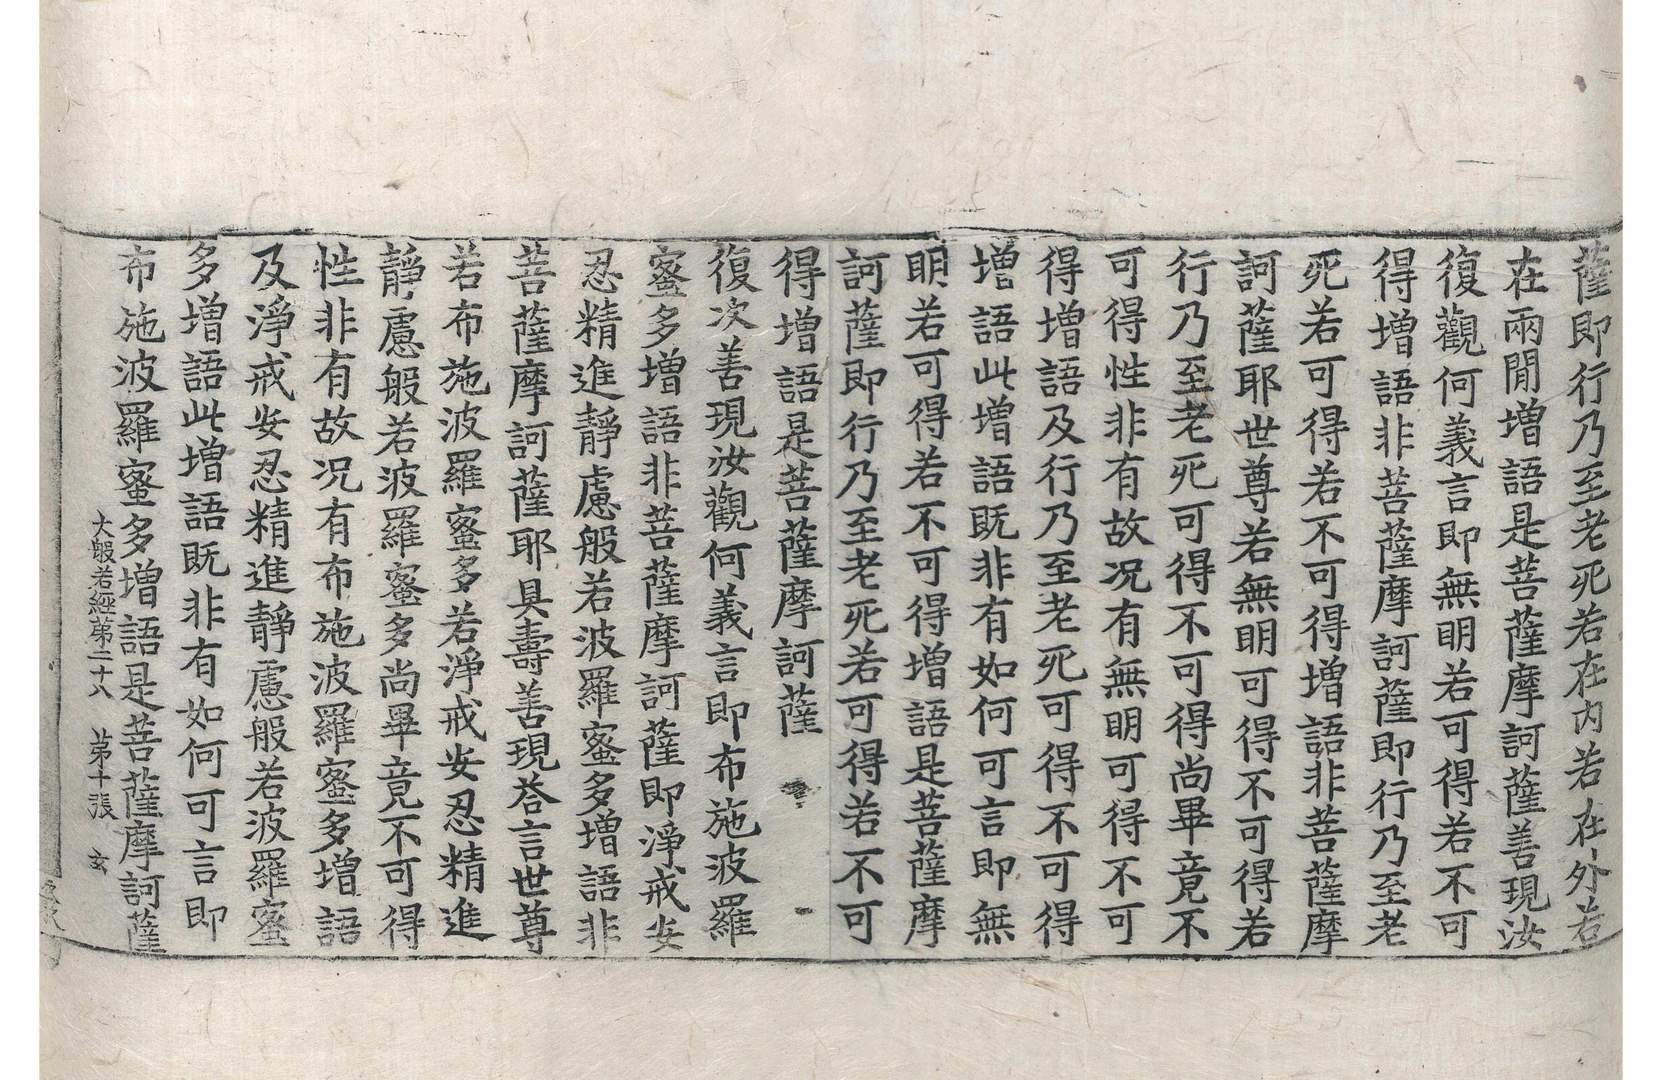 薩即行乃至老死若在內若在外若
在兩閒增語是菩薩摩訶薩善現汝
復觀何義言即無眀若可得若不可
得增語非菩薩摩訶薩即行乃至老
死若可得若不可得增語非菩薩摩
訶薩耶世尊若無眀可得不可得若
行乃至老死可得不可得尚畢竟不
可得性非有故况有無眀可得不可
得增語及行乃至老死可得不可得
增語此增語既非有如何可言即無
眀若可得若不可得增語是菩薩摩
訶薩即行乃至老死若可得若不可
得增語是菩薩摩訶薩
復次善現汝觀何義言即布施波羅
蜜多增語非菩薩摩訶薩即淨戒安
忍精進靜慮般若波羅蜜多增語非
菩薩摩訶薩耶具壽善現荅言世尊
若布施波羅蜜多若淨戒安忍精進
靜慮般若波羅蜜多尚畢竟不可得
性非有故况有布施波羅蜜多增語
及淨戒安忍精進靜慮般若波羅蜜
多增語此增語既非有如何可言即
布施波羅蜜多增語是菩薩摩訶薩
大般若經第二十八 第十張 玄